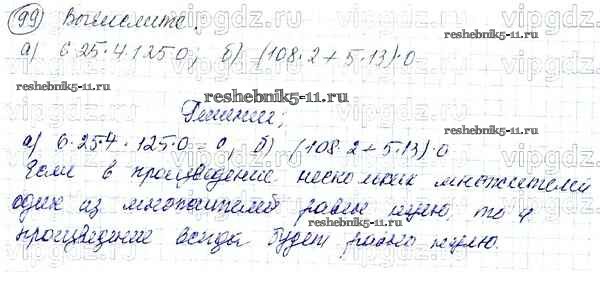 99 Вычислите:
а) 6·25·4·125·0; б) (108·2+5·13)·0
reshebnik5-11.ru
Решение;
а) 6·25·4·125·0=0, б) (108·2+5·13)·0
Если в произведение нескольких множителей
один из множителей равен нулю, то и
произведение всегда будет равно нулю.
reshebnik5-11.ru
vipgdz.ru